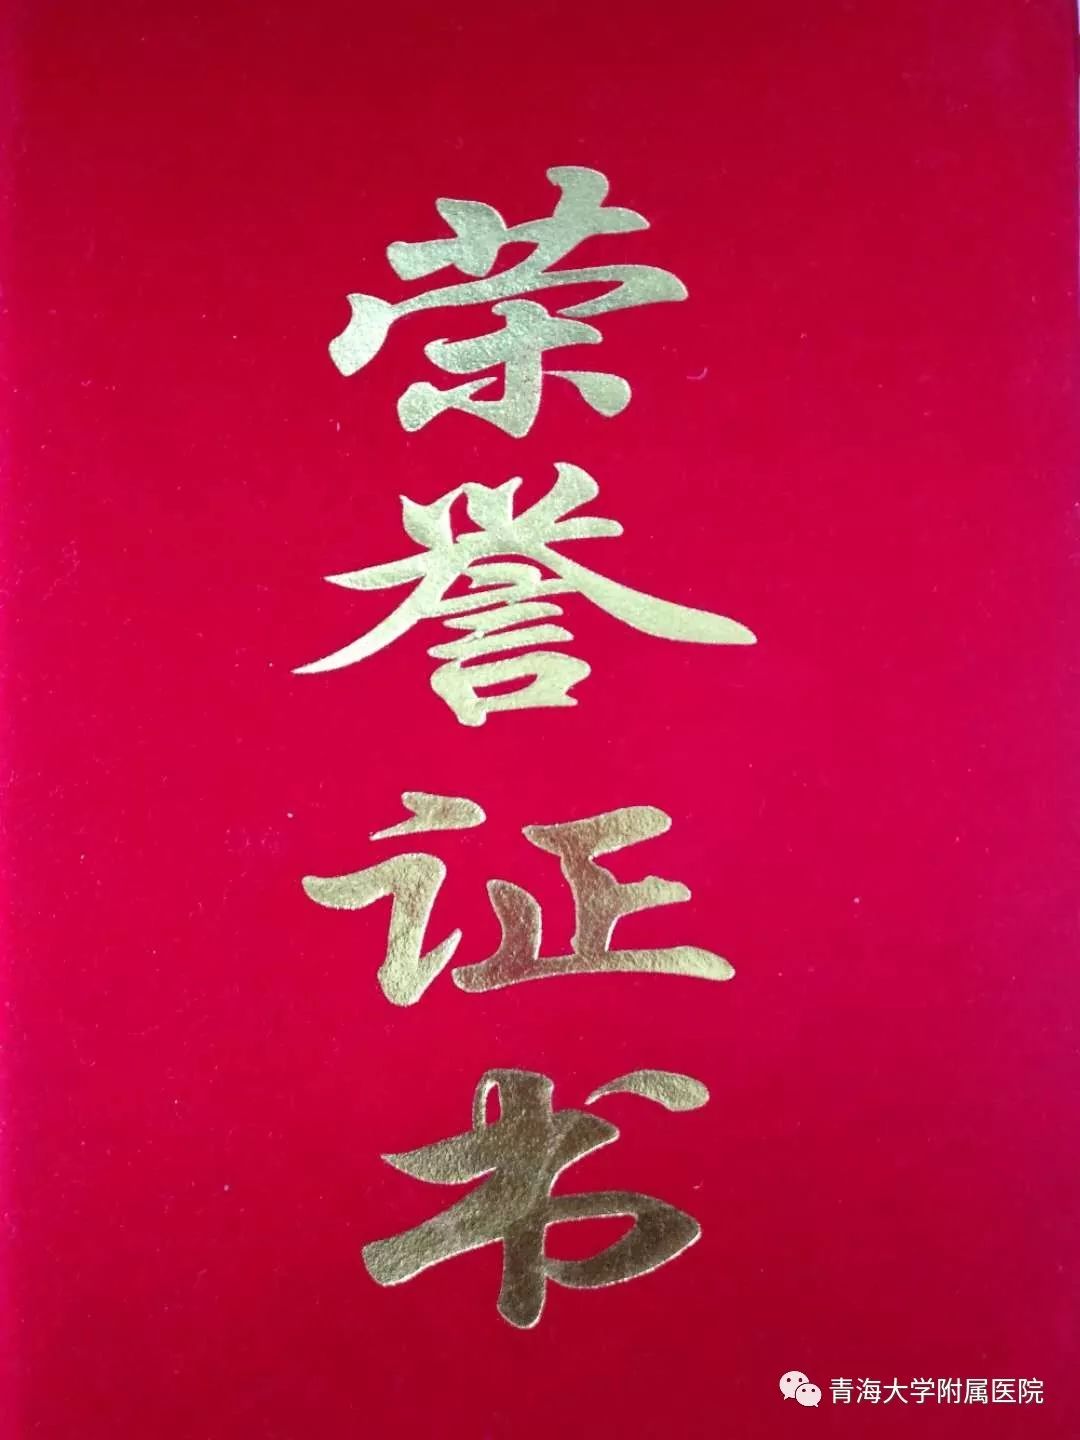 荣誉证书
青海大学附属医院